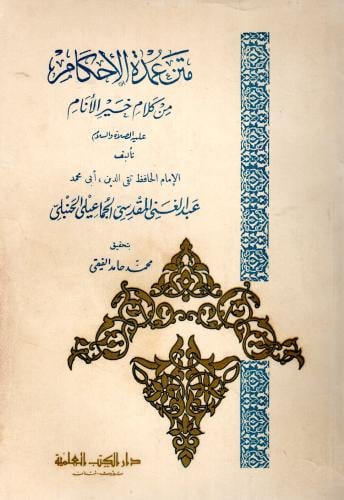 متن عمدة الأحكام
من كلام خير الأنام
عليه الصلاة والسلام
تأليف
الإمام الحافظ تقى الدين ، أبى محمد
عبد الغنى المقدسى الجماعيلى الحنبلى
بتحقيق
محمد حامد الفقى
دار الكتب العلمية
بيروت - لبنان